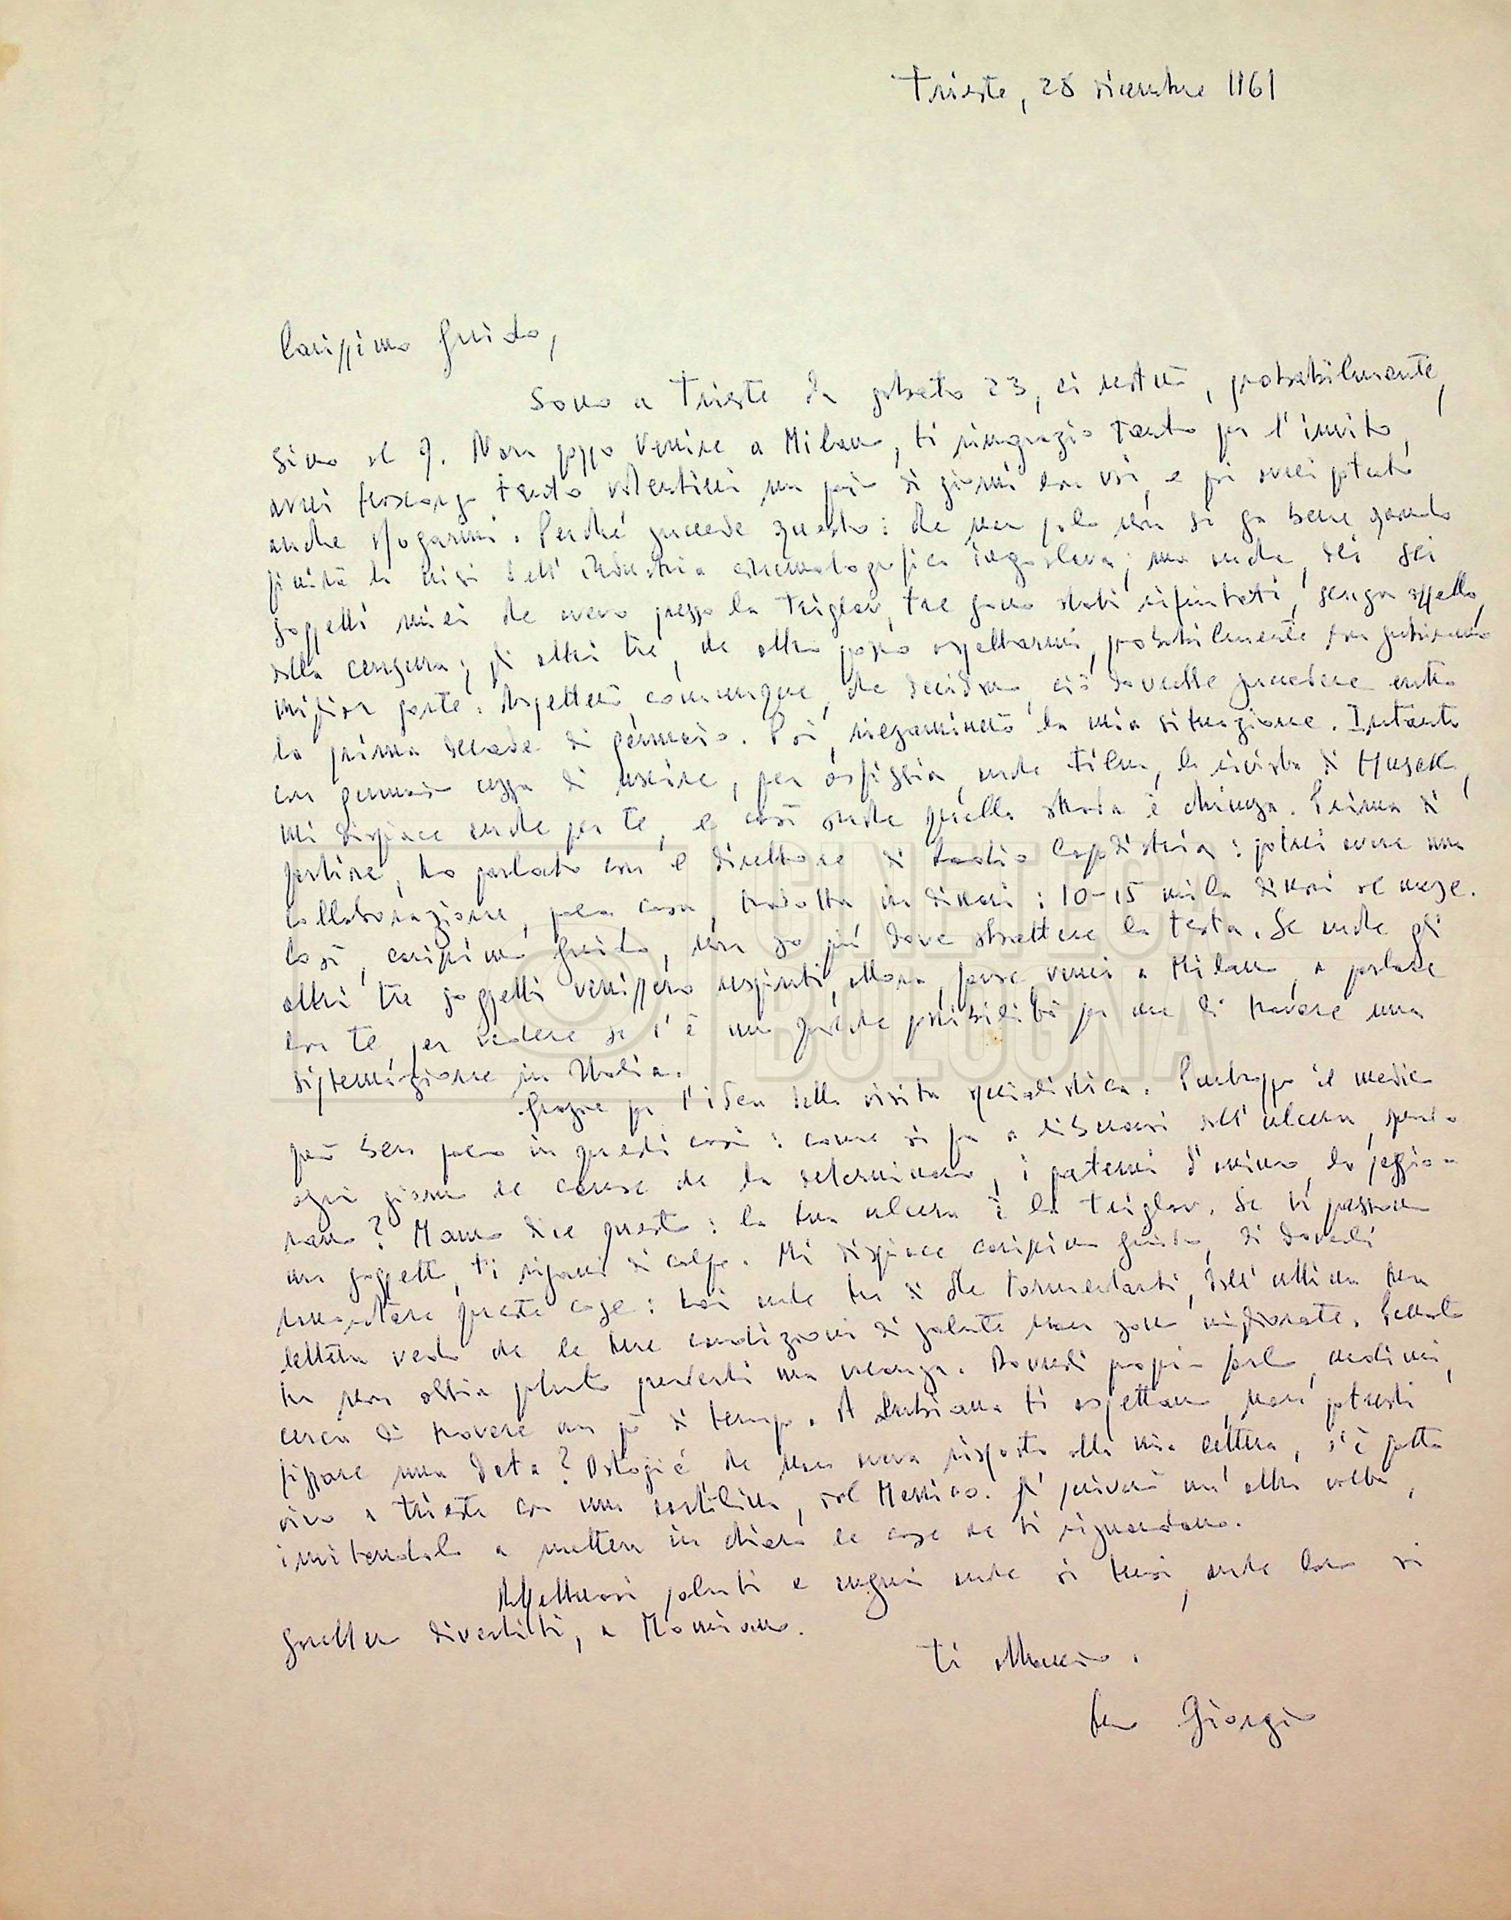 Trieste, 28 dicembre 1961
Carissimo Guido,
Sono a Trieste da sabato 23, ci resterò, probabilmente,
sino al 9. Non posso venire a Milano, ti ringrazio tanto per l'invito,
avrei trascorso tanto volentieri un paio di giorni con voi, e poi avrei potuto
anche sfogarmi. Perché succede questo: che non solo non si sa bene quando
finirà la crisi dell'industria cinematografica jugoslava, ma anche, dei sei
soggetti miei che avevo presso la Triglav, tre sono stati rifiutati, senza appello,
dalla censura; gli altri tre, che altro posso aspettarmi, probabilmente non subiranno
miglior sorte. Aspetterò, comunque, che decidano, ciò dovrebbe succedere entro
la prima decade di gennaio. Poi, riesaminerò la mia situazione. Intanto
con gennaio cessa di uscire, per asfissia, anche Film, la rivista di Musek,
mi dispiace anche per te, e così anche quella strada è chiusa. Prima di
partire, ho parlato con il direttore di Radio Capodistria: potrei avere una
collaborazione, poca cosa, tradotta in dinari: 10-15 mila dinari al mese.
Così, carissimo Guido, non so più dove sbattere la testa. Se anche gli
altri tre soggetti venissero respinti, allora, forse, verrei a Milano, a parlare
con te, per vedere se c'è una qualche possibilità per me di trovare una
sistemazione in Italia.
Grazie per l'idea della visita specialistica. Purtroppo il medico
può ben poco in questi casi: come si fa a liberarsi dell'ulcera, quando
ogni giorno le cause che la determinano, i patemi d'animo, la peggio-
rano? Mamo dice questo: la tua ulcera è la Triglav. Se ti passano
un soggetto, ti sigari di colpo. Mi dispiace, carissimo Guido, di doverti
raccontare queste cose: hai anche tu di che tormentarti, dall'ultima tua
lettera vedo che le tue condizioni di salute non sono migliorate. Peccato
tu non abbia potuto prenderti una vacanza. Dovresti proprio farlo, credimi,
cerca di trovare un po' di tempo. A Lubiana ti aspettano, non potresti
fissare una data? Ostojić, che non aveva risposto alla mia lettera, s'è fatto
vivo a Trieste con una cartolina, dal Messico. Gli scriverò un'altra volta,
invitandolo a mettere in chiaro le cose che ti riguardano.
Affettuosi saluti e auguri anche ai tuoi, anche loro si
sarebbero divertiti, a Momiano.
Ti abbraccio.
tuo Giorgio
CINETECA
BOLOGNA